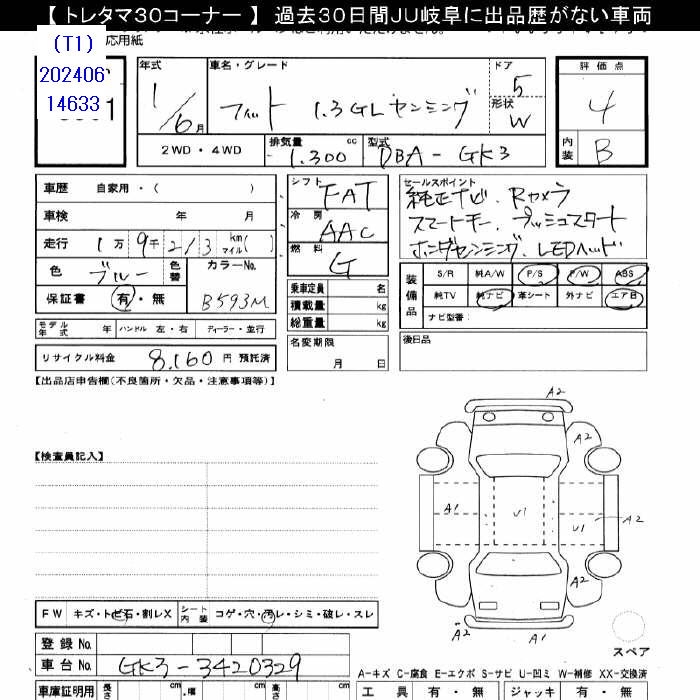 【 トレタマ３０コーナー 】 過去３０日間ＪＵ岐阜に出品歴がない車両
(T1)
202406
14633
応用紙
年式 車名・グレード ドア 評価点
1/6月 フィット 1.3GLセンシング 5 4
形状 W
2WD・4WD 排気量 cc 1.300 型式 DBA-GK3 内装 B
車歴 自家用・( )
車検 年 月
走行 1万9千213 km マイル( )
色 ブルー 色替 カラーNo. B593M
保証書 有・無
モデル年式 年 ハンドル 左・右 ディーラー・並行
リサイクル料金 8,160 円 預託済
シフト FAT
冷房 AAC
燃料 G
乗車定員 名
積載量 kg
総重量 kg
名変期限
月 日
セールスポイント
純正ナビ. Rカメラ
スマートキー. プッシュスタート
ホンダセンシング. LEDヘッド
装備品 S/R 純A/W P/S P/W ABS
純TV 純ナビ 革シート 外ナビ エアB
ナビ型番:
後日品
【出品店申告欄(不良箇所・欠品・注意事項等)】
【検査員記入】
A2
A2
A1 U1 U1 A2
A2
A2 A1
スペア
FW キズ・トビ石・割レX シート内装 コゲ・穴・汚レ・シミ・破レ・スレ
登録 No.
車台 No. GK3-3420329
A-キズ C-腐食 E-エクボ S-サビ U-凹ミ W-補修 XX-交換済
車庫証明用 長さ cm 幅 cm 高さ cm
工具 有・無 ジャッキ 有・無